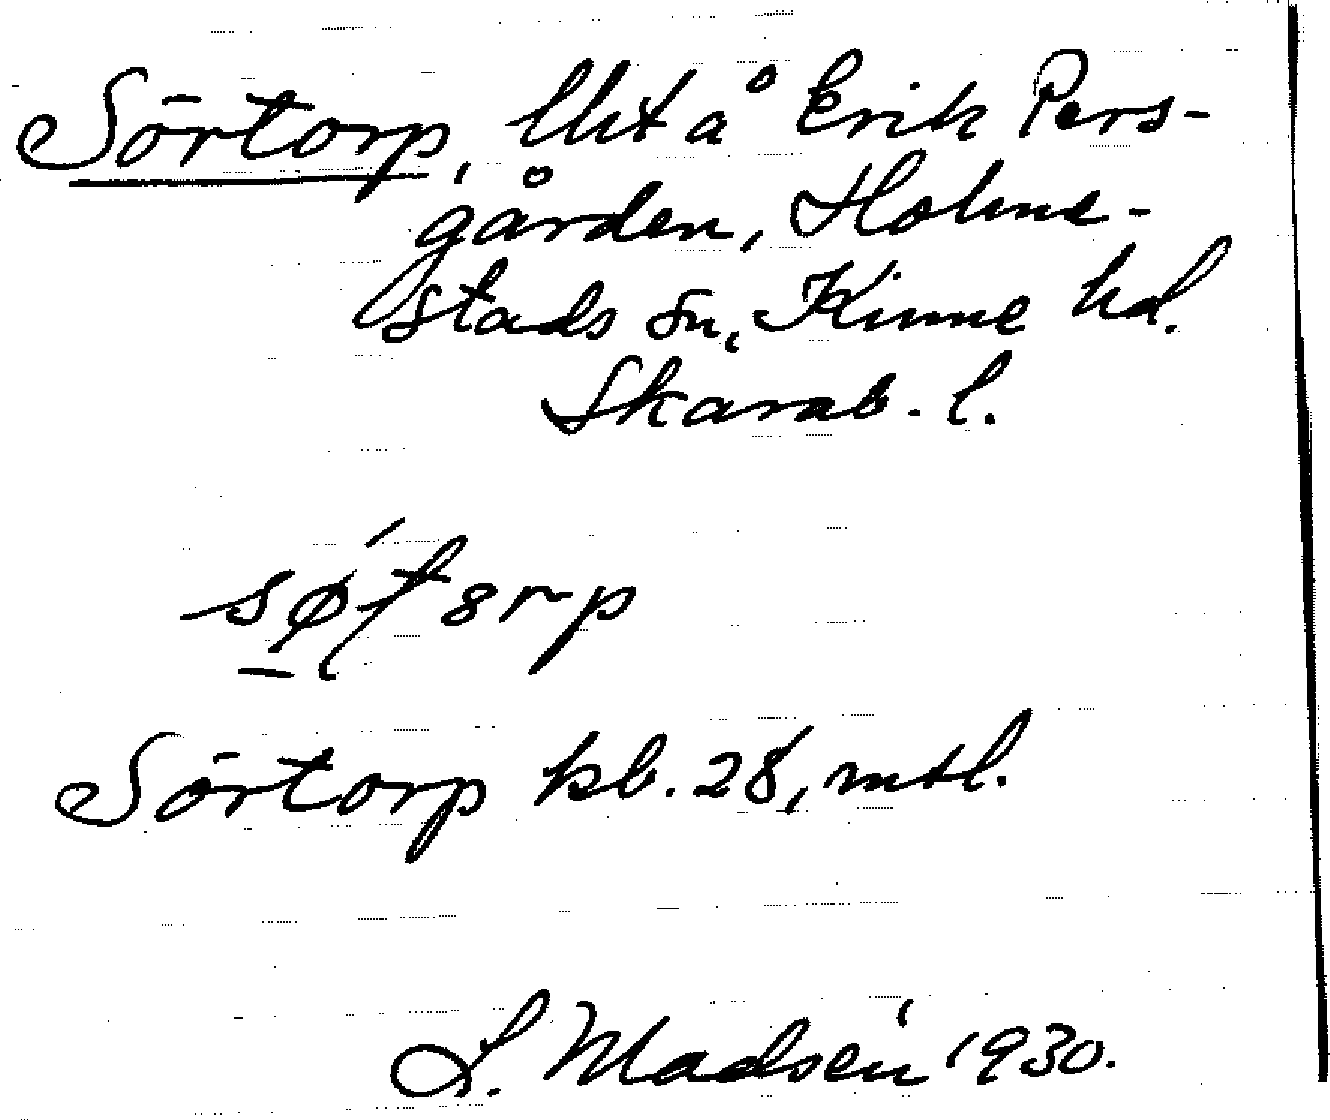 Sörtorp, lht å Erik Pers-
gården, Holme-
stads sn, Kinne hd.
Skarab. l.
Sörtorp kb. 28, mtl.
L. Madsén 1930.